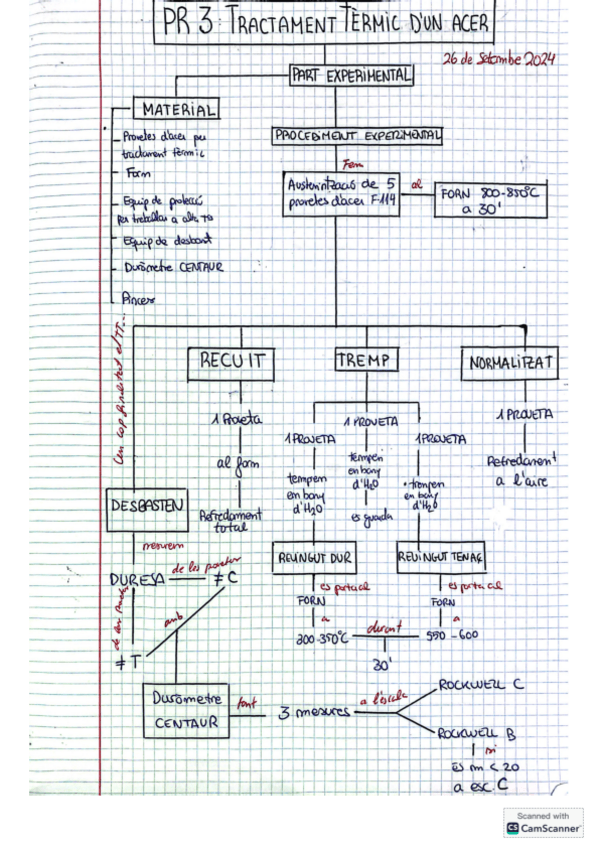 PR 3: TRACTAMENT TÈRMIC D'UN ACER
26 de Setembre 2024
PART EXPERIMENTAL
MATERIAL
Provetes d'acer per
tractament tèrmic
Forn
Equip de protecció
per treballar a alta Tª
Equip de desbast
Duròmetre CENTAUR
Pinces
PROCEDIMENT EXPERIMENTAL
Fem
Austenització de 5
provetes d'acer F-114
al
FORN 800-850ºC
a 30'
Un cop finalitzat el TT...
RECUIT
1 Proveta
al forn
Refredament
total
TREMP
1 PROVETA
tempem
en bany
d'H2O
REVINGUT DUR
es porta al
FORN
a
300-350ºC
1 PROVETA
tempem
en bany
d'H2O
es guarda
1 PROVETA
trempem
en bany
d'H2O
REVINGUT TENAÇ
es porta al
FORN
a
550-600
durant
30'
NORMALITZAT
1 PROVETA
Refredament
a l'aire
DESBASTEN
mesurem
DURESA
de les provetes
≠ C
≠ T
amb
Duròmetre
CENTAUR
fent
3 mesures
a l'escala
ROCKWELL C
ROCKWELL B
si
és m < 20
a esc. C
Scanned with
CS CamScanner